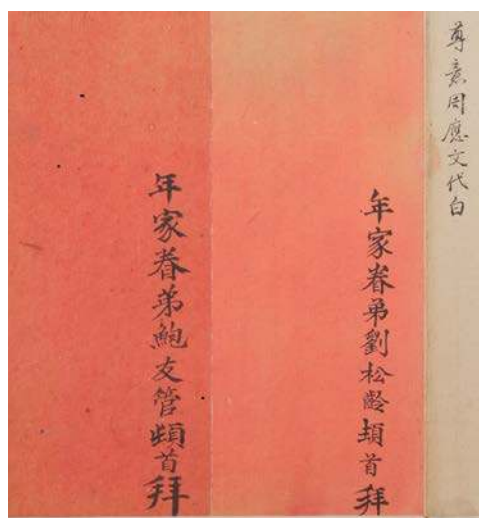 尊意周應文代白
年家眷弟劉松齡頓首拜
年家眷弟鮑友管頓首拜